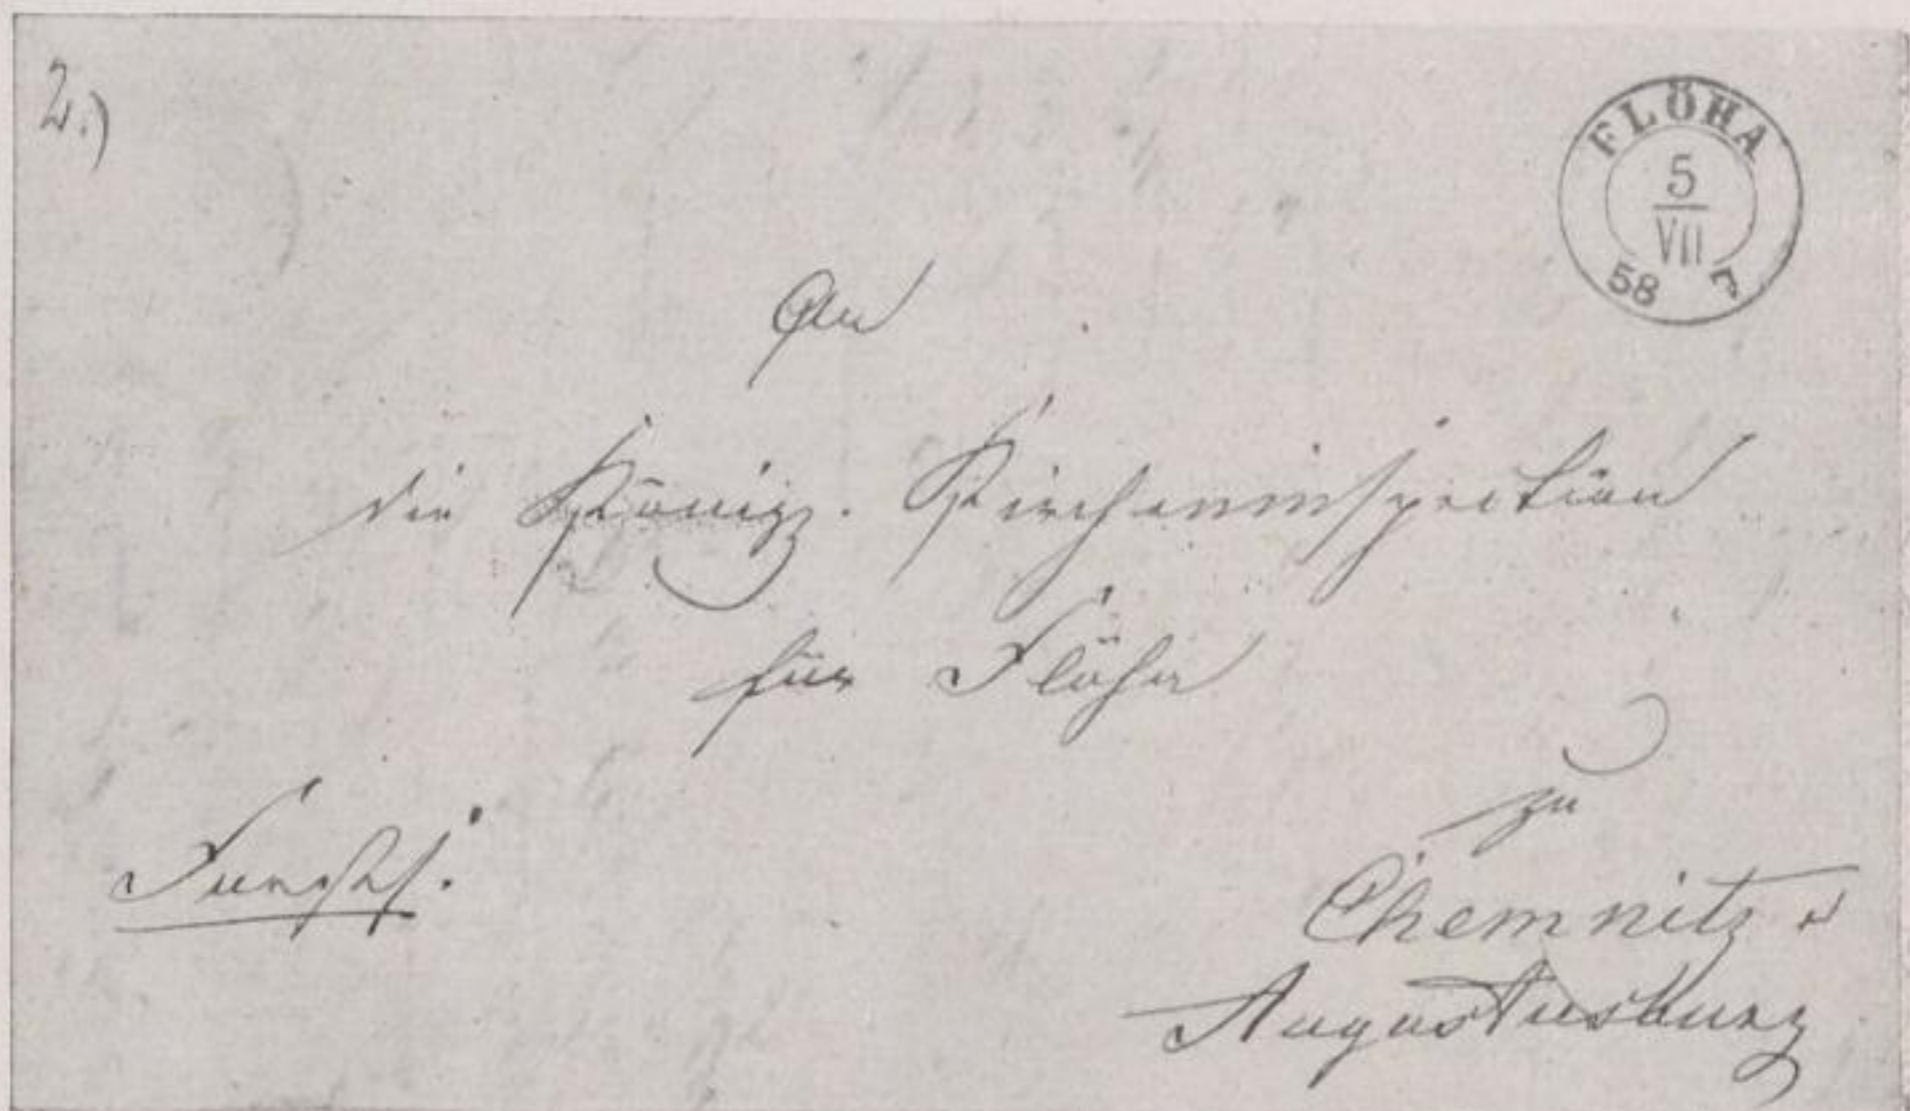 2.)
FLÖHA
5
VII
58 7
An
die Königl. Kircheninspection
für Flöha
zu
Chemnitz u
Augustusburg